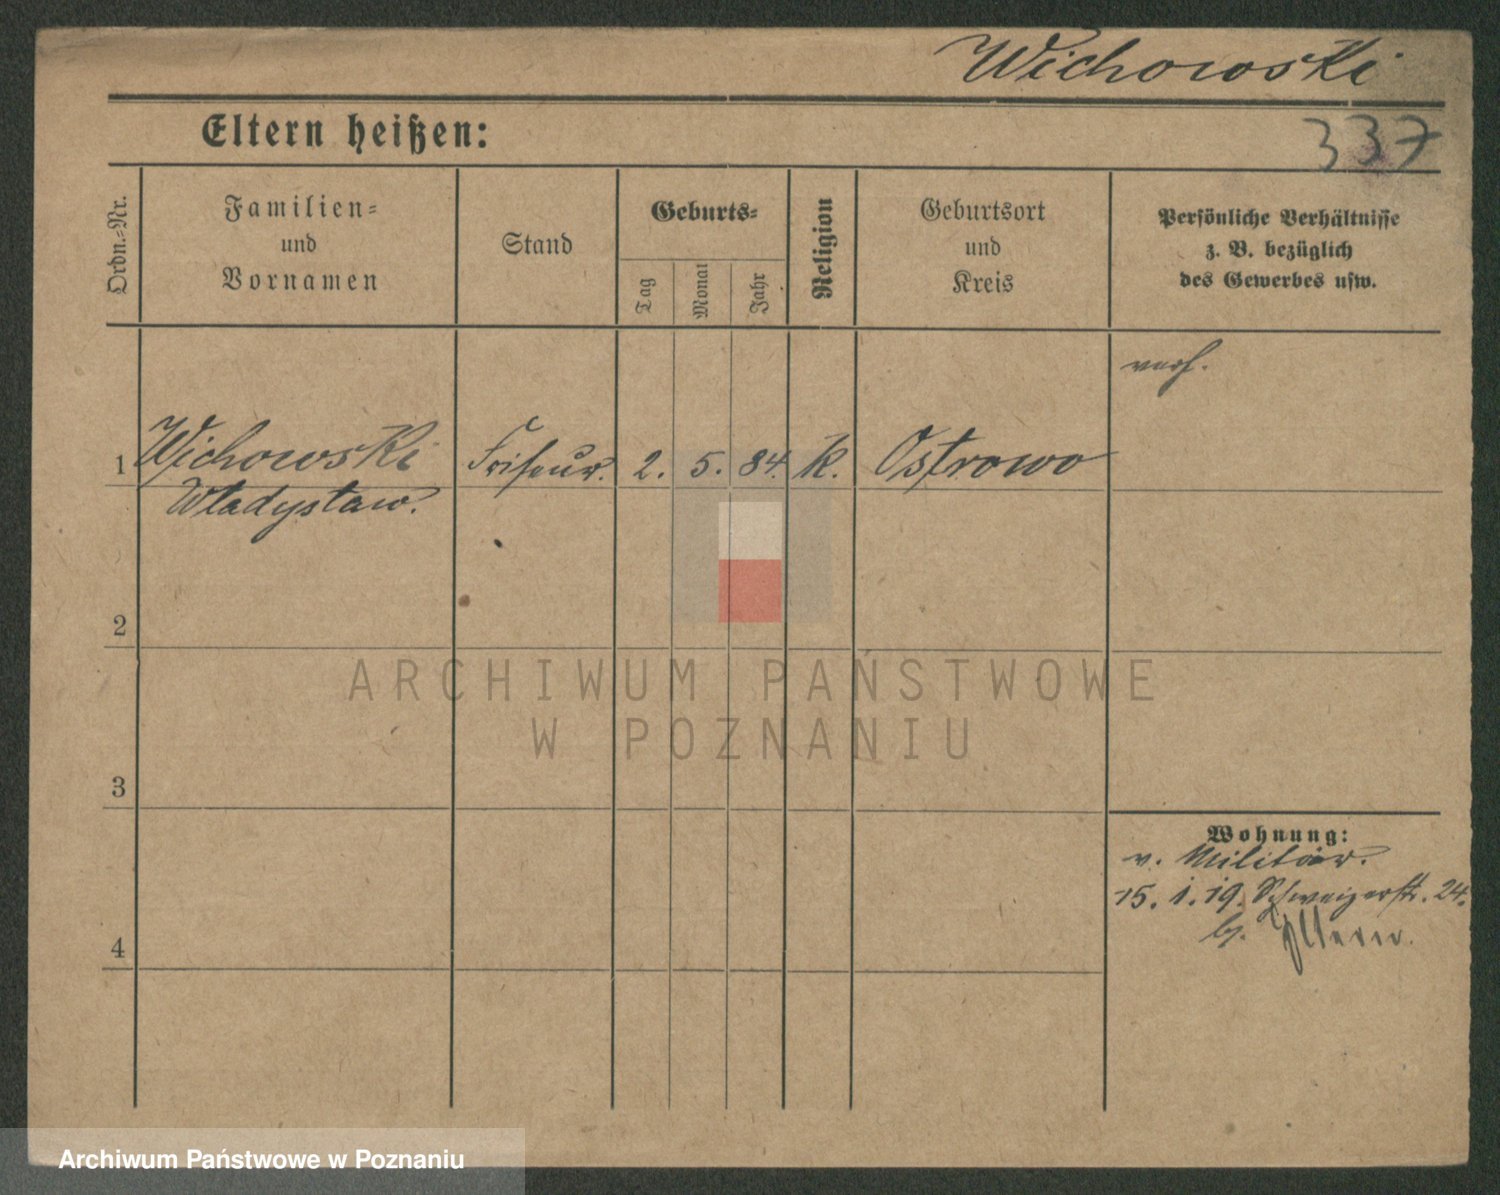 Wichowski
Eltern heißen:
337
Ordn.-Nr.
Familien-
und
Vornamen
Stand
Geburts-
Tag
Monat
Jahr
Religion
Geburtsort
und
Kreis
Persönliche Verhältnisse
z. B. bezüglich
des Gewerbes usw.
verh.
1 Wichowski Friseur. 2. 5. 84. k. Ostrowo
Wladyslaw.
2
3
4
Wohnung:
v. Militär.
15. 1. 19. Schweizerstr. 24.
b.
ARCHIWUM PAŃSTWOWE
W POZNANIU
Archiwum Państwowe w Poznaniu